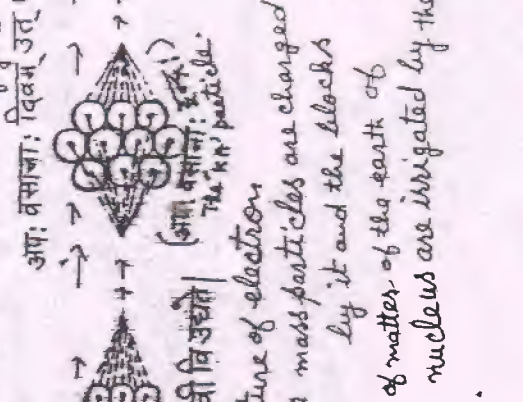 अप: वसाना: दिवम् उत्
(अप: वसाना:
The particle.
वि उद्यते |
ture of electron
mass particles are charged
by it and the blocks
of matter of the earth of
nucleus are irrigated by the